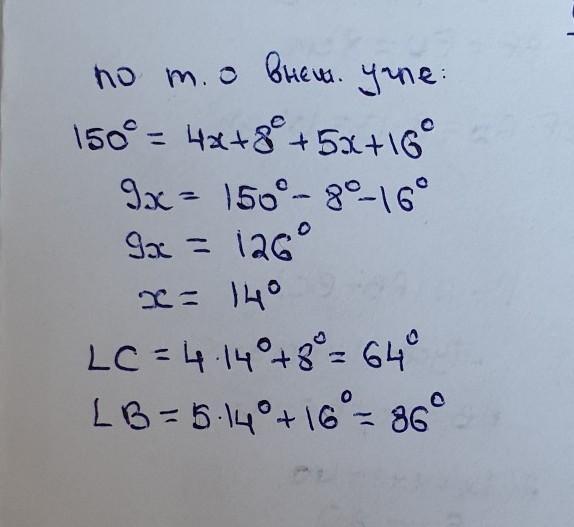 по т. о внеш. угле:
150° = 4x+8°+5x+16°
9x = 150°-8°-16°
9x = 126°
x = 14°
∠C = 4·14°+8° = 64°
∠B = 5·14°+16° = 86°